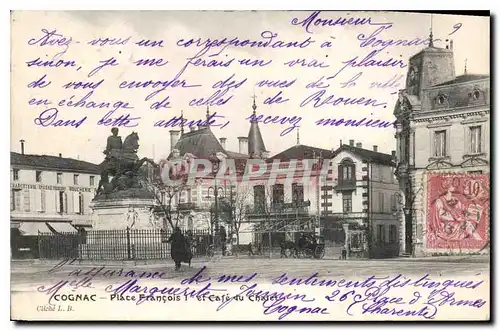 Monsieur 9
Avez-vous un correspondant à Cognac,
sinon, je me ferais un vrai plaisir
de vous envoyer des vues de la ville
en échange de celles de Rouen.
Dans cette attente, recevez monsieur
CHARCUTERIE BOUCHERIE
CPARAMA.COM
10
l'assurance de mes sentiments distingués
COGNAC - Place François 1er et Café du Chalet
Marguerite 26 Place d'Armes
Cognac (Charente)
Cliché L. B.